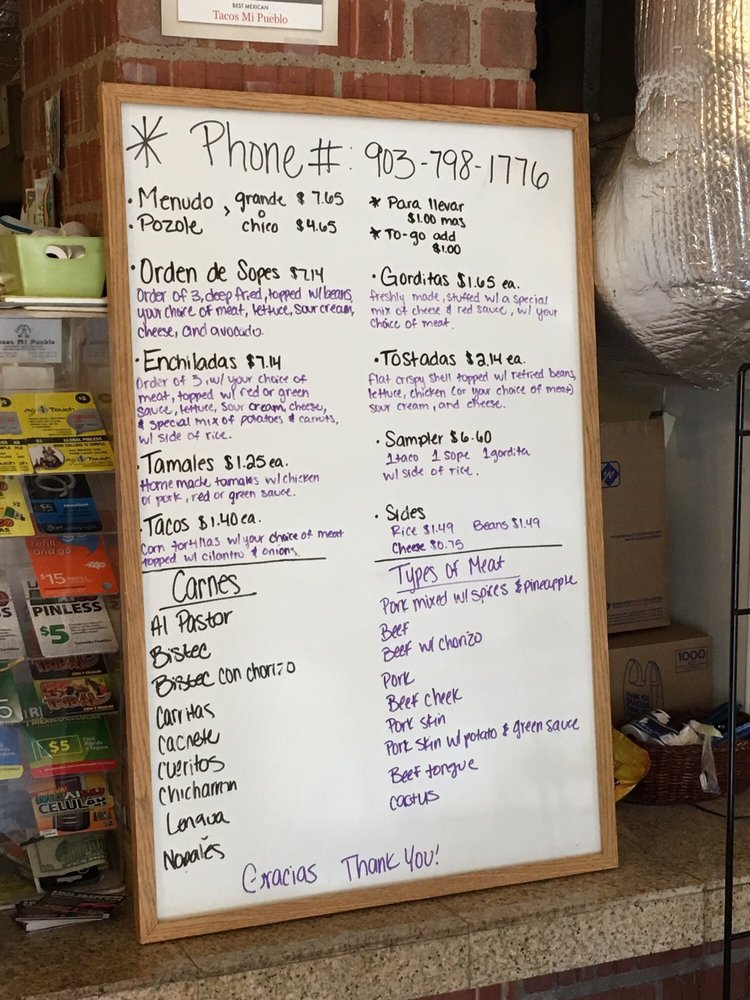 BEST MEXICAN
Tacos Mi Pueblo
* Phone #: 903-798-1776
· Menudo , grande $ 7.65
· Pozole o chico $4.65
* Para llevar
$1.00 mas
* To-go add
$1.00
· Orden de Sopes $7.14
Order of 3, deep fried, topped w/ beans,
your choice of meat, lettuce, sour cream,
cheese, and avocado.
· Enchiladas $7.14
Order of 3, w/ your choice of
meat, topped w/ red or green
sauce, lettuce, sour cream, cheese,
& special mix of potatoes & carrots,
w/ side of rice.
· Tamales $1.25 ea.
Home made tamales w/ chicken
or pork, red or green sauce.
· Tacos $1.40 ea.
Corn tortillas w/ your choice of meat
topped w/ cilantro & onions.
· Gorditas $1.65 ea.
freshly made, stuffed w/ a special
mix of cheese & red sauce, w/ your
choice of meat.
· Tostadas $2.14 ea.
flat crispy shell topped w/ refried beans,
lettuce, chicken (or your choice of meat)
sour cream, and cheese.
· Sampler $6.60
1 taco 1 sope 1 gordita
w/ side of rice.
· Sides
Rice $1.49 Beans $1.49
Cheese $0.75
Carnes
Al Pastor
Bistec
Bistec con chorizo
Carritas
Cachete
Cueritos
Chicharron
Lengua
Nopales
Types of Meat
Pork mixed w/ spices & pineapple
Beef
Beef w/ chorizo
Pork
Beef cheek
Pork skin
Pork skin w/ potato & green sauce
Beef tongue
cactus
Gracias Thank You!
Tacos Mi Pueblo
my Touch
$5
refill
and go
$15
PINLESS
$5
$5
CELULAR
1000